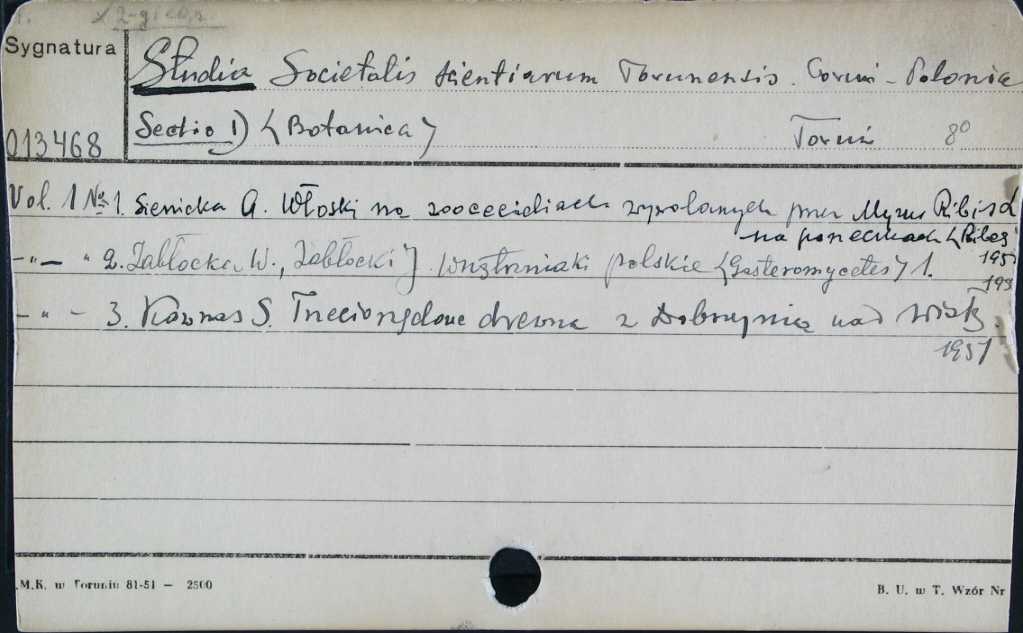 Sygnatura
Studia Societatis Scientiarum Torunensis. Toruń - Polonia
013468
Sectio D (Botanica) Toruń 8°
Vol. 1 № 1. Sienicka A. Włoski na zoocecidiach wywołanych przez Myzus Ribis L
na porzeczkach (Ribes
195
- " - " 2. Zabłocka W., Zabłocki J. Wnętrzniaki polskie (Gasteromycetes) 1.
195
- " - 3. Kownas S. Trzeciorzędowe drewna z Dobrzynia nad Wisłą.
1951
.M.K. w Toruniu 81-51 — 2500
B. U. w T. Wzór Nr